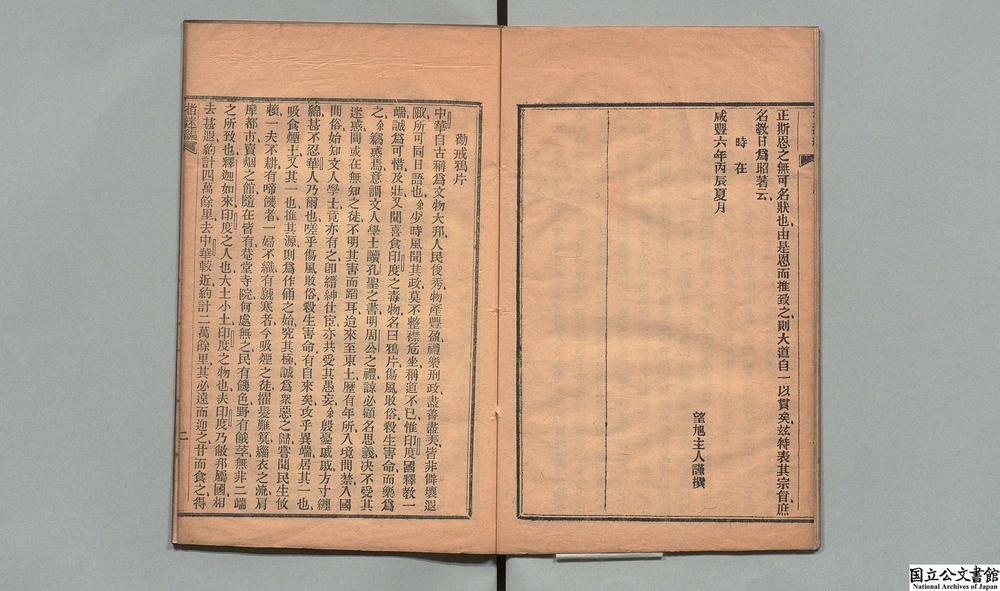 正斯恩之無可名狀也由是恩而推致之則大道自一以貫矣茲特表其宗旨庶
名教日爲昭著云
時在
咸豐六年丙辰夏月
望旭主人謹撰
勸戒鴉片
中華自古稱爲文物大邦人民俊秀物產豐盈禮樂刑政盡善盡美皆非僻壤遐
陬所可同日語也余少時風聞其政莫不整襟危坐稱道不已惟印度國釋教一
端誠爲可惜及壯又聞喜食印度之毒物名曰鴉片傷風敗俗殺生害命而樂爲
之余竊惑焉意謂文人學士讀孔聖之書明周公之禮諒必顧名思義决不受其
迷惑間或在無知之徒不明其害而蹈耳迨來至東土歷有年所入境問禁入國
問俗始知文人學士竟亦有之卽縉紳仕宦亦共受其愚妄余殷憂戚戚方寸纏
綿甚不忍華人乃爾也嗟乎傷風敗俗殺生害命有自來矣攻乎異端居其一也
吸食煙土又其一也推其源則爲作俑之始究其極誠爲衆惡之歸嘗聞民生攸
賴一夫不耕有啼饑者一婦不織有號寒者今吸煙之徒擢髮難莫緇衣之流肩
摩都市賣烟之館隨在皆有菴堂寺院何處無之民有饑色野有餓莩無非二端
之所致也釋迦如來印度之人也大土小土印度之物也夫印度乃敝邦屬國相
去甚遐約計四萬餘里去中華較近約計二萬餘里其必遠而迎之甘而食之得
指迷編
二
国立公文書館
National Archives of Japan